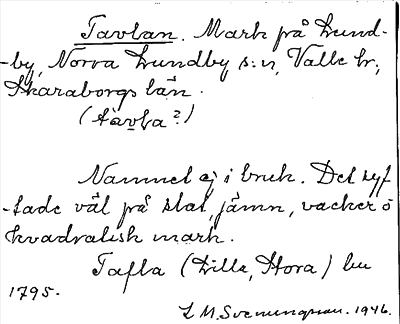 Tavlan. Mark på Lund-
-by, Norra Lundby s:n, Valle hr,
Skaraborgs län.
(tavla?)
Namnet ej i bruk. Det syf
-tade väl på slät, jämn, vacker o
kvadratisk mark.
Tafla (Lilla, Stora) lm
1795.
L M. Svenungsson. 1946.